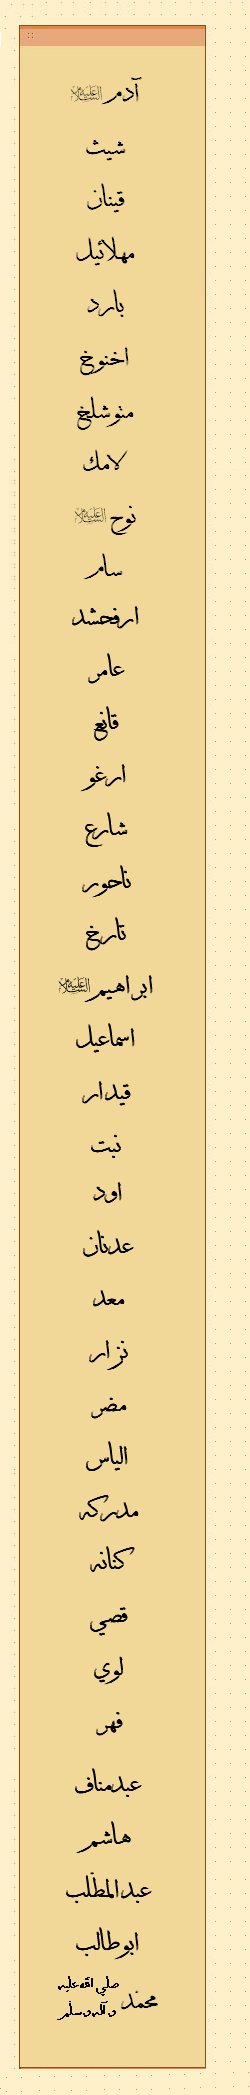 آدم علیه السلام
شيث
قينان
مهلائيل
يارد
اخنوخ
متوشلخ
لامك
نوح علیه السلام
سام
ارفحشد
عامر
قانع
ارغو
شارع
ناحور
تارخ
ابراهيم علیه السلام
اسماعيل
قيدار
نبت
اود
عدنان
معد
نزار
مضر
الياس
مدركه
كنانه
قصي
لوي
فهر
عبدمناف
هاشم
عبدالمطلب
ابوطالب
محمد صلي الله عليه و آله و سلم